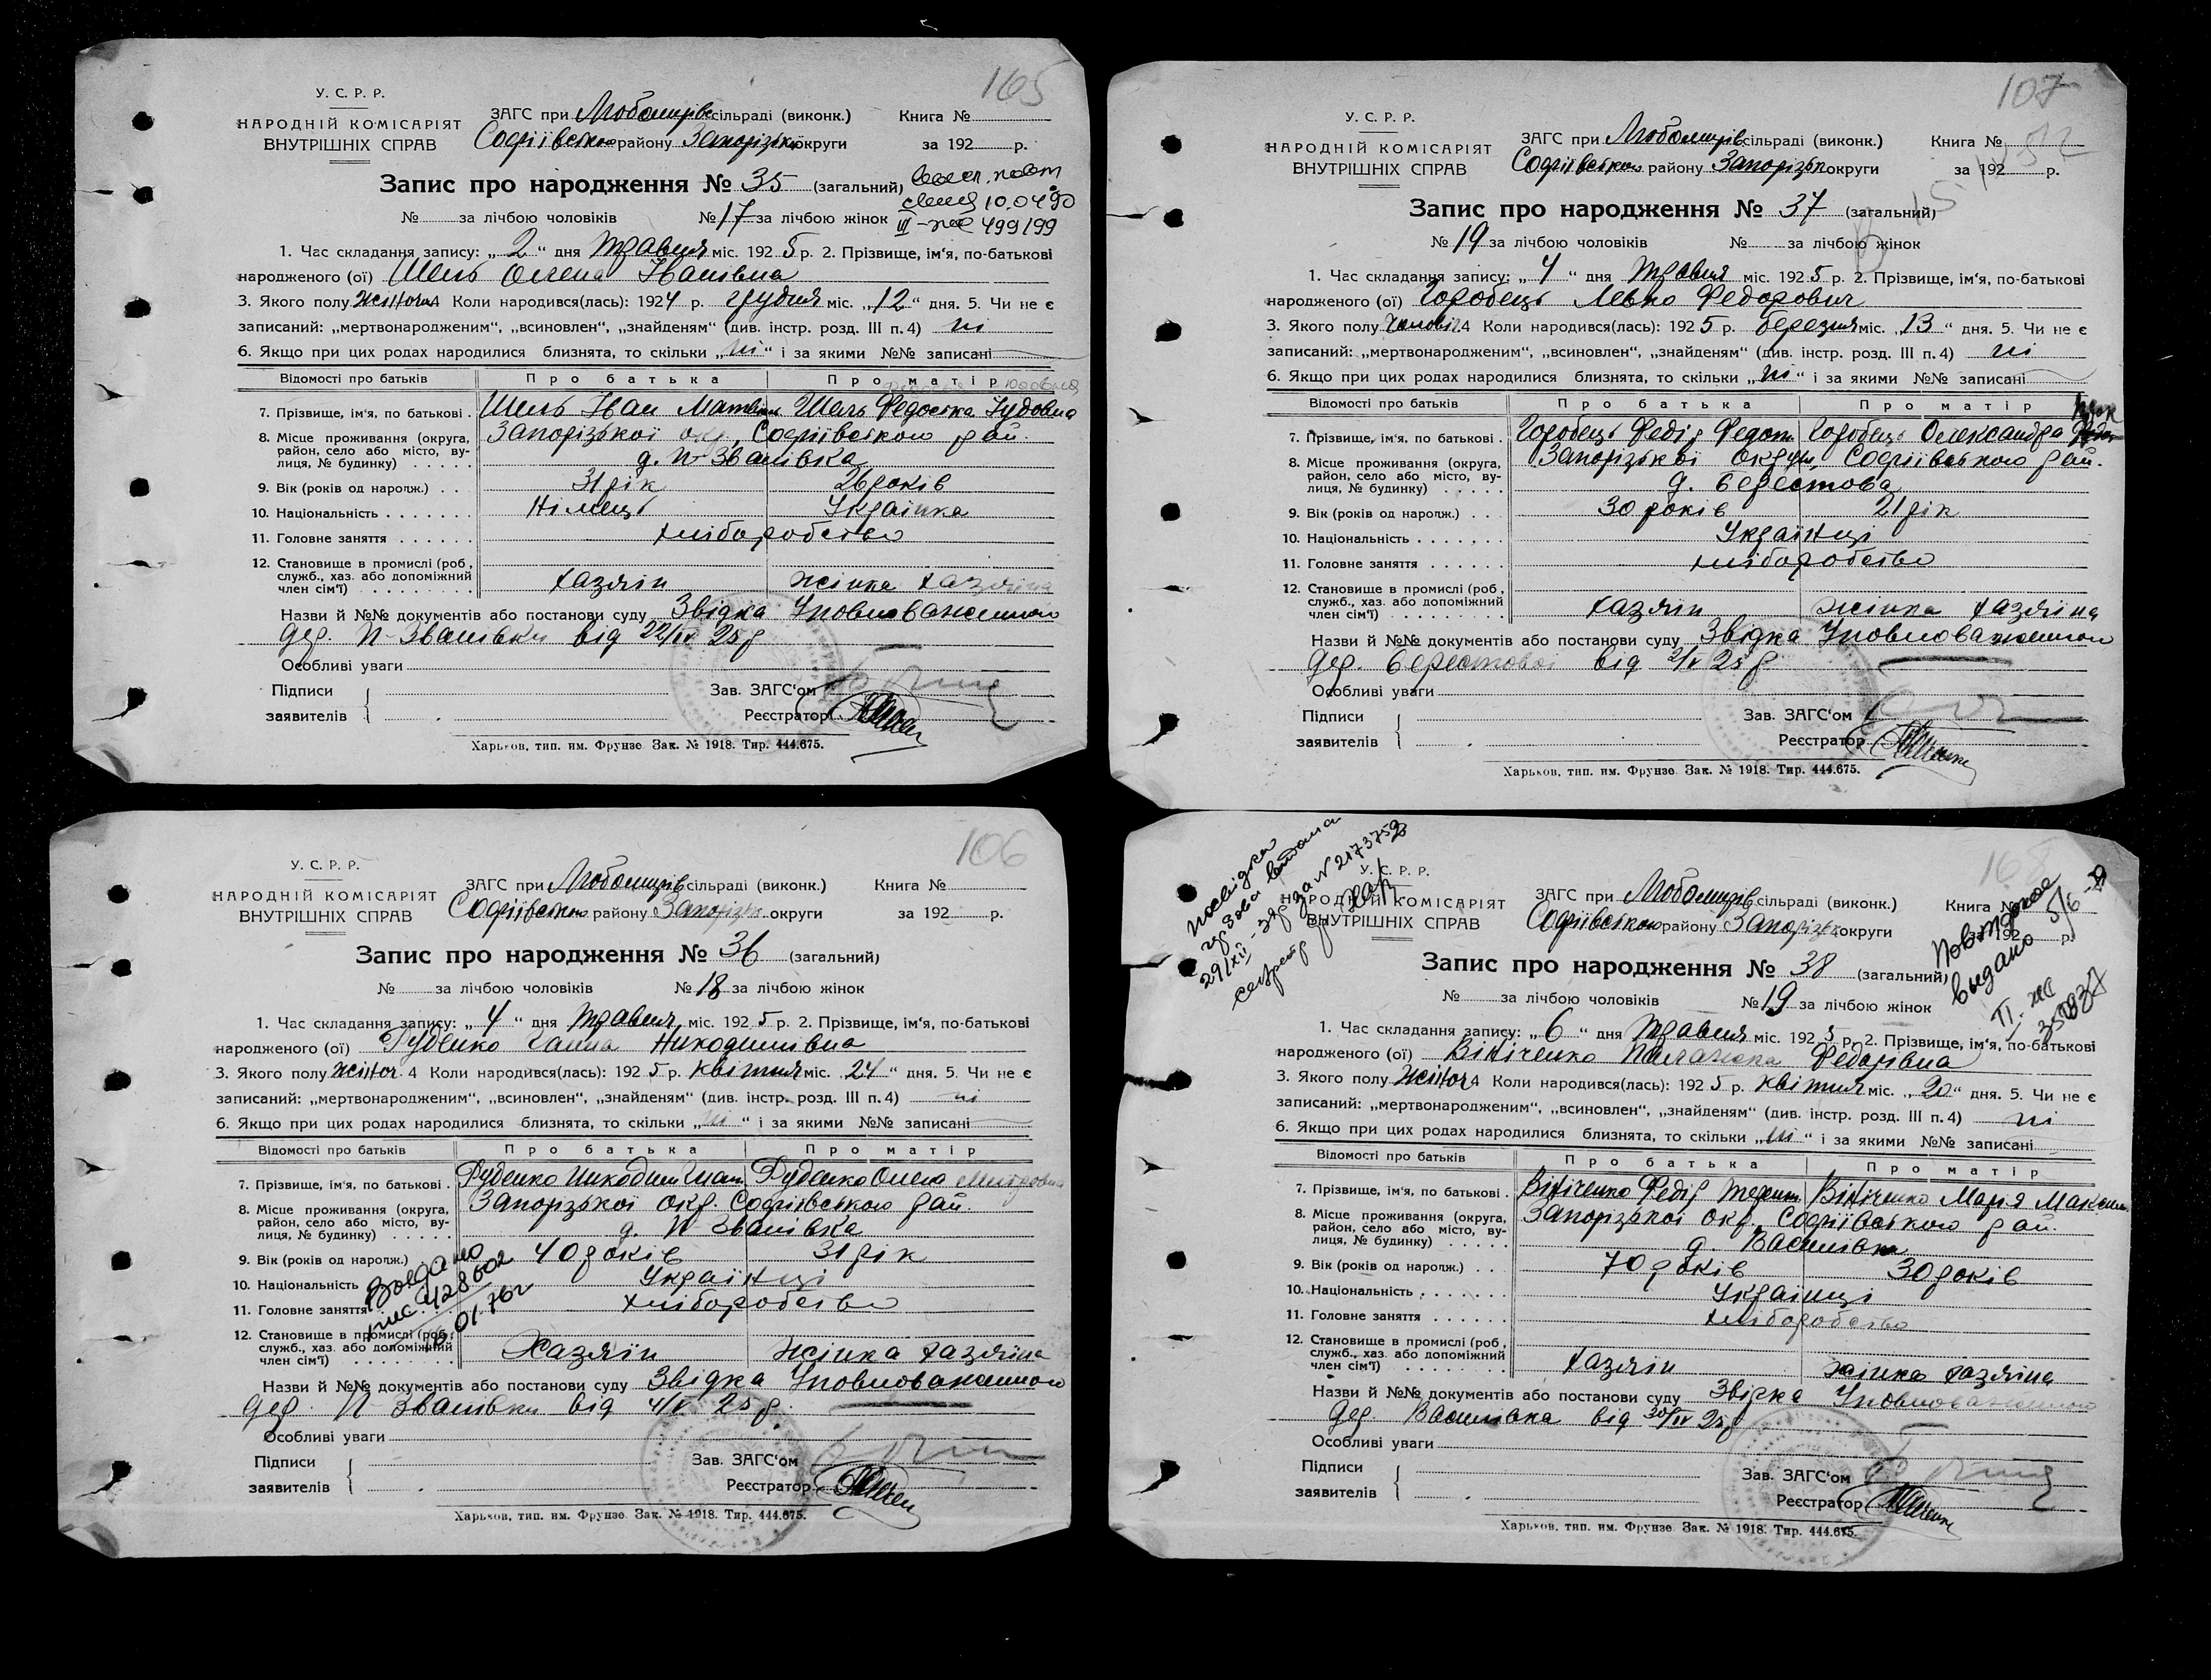 165
У. С. Р. Р.
НАРОДНІЙ КОМІСАРІЯТ
ВНУТРІШНІХ СПРАВ
ЗАГС при Любомирів сільраді (виконк.) Книга №
Софіївського району Запорізької округи за 192 р.
Запис про народження № 35 (загальний)
10.04.90
№ за лічбою чоловіків № 17 за лічбою жінок III-жс 499199
1. Час складання запису: „ 2 “ дня травня міс. 192 5 р. 2. Прізвище, ім‘я, по-батькові
народженого (ої) Шель Олена Іванівна
3. Якого полу жіноч. 4 Коли народився(лась): 1924 р. грудня міс. „12“ дня. 5. Чи не є
записаний: „мертвонародженим“, „всиновлен“, „знайденям“ (див. інстр. розд. III п. 4) ні
6. Якщо при цих родах народилися близнята, то скільки „ні“ і за якими №№ записані
Відомості про батьків Про батька Про матір
7. Прізвище, ім‘я, по батькові . Шель Іван Матвійов Шель Федоська Іудовна
8. Місце проживання (округа, район, село або місто, вулиця, № будинку) Запорізької окр., Софіївського рай.
д. П-Званівка
9. Вік (років од нарож.) . . . 31 рік 26 років
10. Національність . . . . . . . Німець Українка
11. Головне заняття . . . . . . хліборобство
12. Становище в промислі (роб, служб., хаз. або допоміжний член сім‘ї) хазяїн жінка хазяїна
Назви й №№ документів або постанови суду Звідка Уповноваженного
дер. П-Званівки від 22/IV 25 р
Особливі уваги
Підписи Зав. ЗАГС‘ом
заявителів Реєстратор
Харьков, тип. им. Фрунзе. Зак. № 1918. Тир. 444.675.
107
У. С. Р. Р.
НАРОДНІЙ КОМІСАРІЯТ
ВНУТРІШНІХ СПРАВ
ЗАГС при Любомирів сільраді (виконк.) Книга №
Софіївського району Запорізьк округи за 192 р.
Запис про народження № 37 (загальний)
№ 19 за лічбою чоловіків № за лічбою жінок
1. Час складання запису: „ 4 “ дня травня міс. 192 5 р. 2. Прізвище, ім‘я, по-батькові
народженого (ої) Горобець Левко Федорович
3. Якого полу чоловіч. 4 Коли народився(лась): 192 5 р. березня міс. „13“ дня. 5. Чи не є
записаний: „мертвонародженим“, „всиновлен“, „знайденям“ (див. інстр. розд. III п. 4) ні
6. Якщо при цих родах народилися близнята, то скільки „ні“ і за якими №№ записані
Відомості про батьків Про батька Про матір
7. Прізвище, ім‘я, по батькові . Горобець Федір Федот. Горобець Олександра
8. Місце проживання (округа, район, село або місто, вулиця, № будинку) Запорізької округи, Софіївського рай.
д. Берестова
9. Вік (років од нарож.) . . 30 років 21 рік
10. Національність . . . . . . . Українці
11. Головне заняття . . . . . . хліборобство
12. Становище в промислі (роб, служб., хаз. або допоміжний член сім‘ї) хазяїн жінка хазяїна
Назви й №№ документів або постанови суду Звідка Уповноваженного
дер. Берестової від 2/V 25 р
Особливі уваги
Підписи Зав. ЗАГС‘ом
заявителів Реєстратор
Харьков, тип. им. Фрунзе Зак. № 1918. Тир. 444.675.
106
У. С. Р. Р.
НАРОДНІЙ КОМІСАРІЯТ
ВНУТРІШНІХ СПРАВ
ЗАГС при Любомирів сільраді (виконк.) Книга №
Софіївського району Запорізьк округи за 192 р.
Запис про народження № 36 (загальний)
№ за лічбою чоловіків № 18 за лічбою жінок
1. Час складання запису: „ 4 “ дня травня міс. 192 5 р. 2. Прізвище, ім‘я, по-батькові
народженого (ої) Руденко Ганна Никодимівна
3. Якого полу жіноч. 4 Коли народився(лась): 192 5 р. квітня міс. „24“ дня. 5. Чи не є
записаний: „мертвонародженим“, „всиновлен“, „знайденям“ (див. інстр. розд. III п. 4) ні
6. Якщо при цих родах народилися близнята, то скільки „ні“ і за якими №№ записані
Відомості про батьків Про батька Про матір
7. Прізвище, ім‘я, по батькові . Руденко Никодим Гнат. Руденко Олена Митровна
8. Місце проживання (округа, район, село або місто, вулиця, № будинку) Запорізької окр. Софіївського рай.
д. П Званівка
9. Вік (років од нарож.) 40 років 31 рік
10. Національність Українці
11. Головне заняття хліборобство
428602
01.76г
12. Становище в промислі (роб, служб., хаз. або допоміжний член сім‘ї) Хазяїн жінка хазяїна
Назви й №№ документів або постанови суду Звідка Уповноваженного
дер. П-Званівки від 4/V 25 р.
Особливі уваги
Підписи Зав. ЗАГС‘ом
заявителів Реєстратор
Харьков, тип. им. Фрунзе Зак. № 1918. Тир. 444.675.
посвідка
29/XII
У. С. Р. Р.
НАРОДНІЙ КОМІСАРІЯТ
ВНУТРІШНІХ СПРАВ
ЗАГС при Любомирів сільраді (виконк.) Книга №
Софіївського району Запорізьк округи 192 р.
Повторное
выдано 5/6-
Запис про народження № 38 (загальний)
№ за лічбою чоловіків № 19 за лічбою жінок
1. Час складання запису: „ 6 “ дня травня міс. 192 5 р. 2. Прізвище, ім‘я, по-батькові
народженого (ої) Вініченко Палажка Федорівна
3. Якого полу жіноч. 4 Коли народився(лась): 192 5 р. квітня міс. „20“ дня. 5. Чи не є
записаний: „мертвонародженим“, „всиновлен“, „знайденям“ (див. інстр. розд. III п. 4) ні
6. Якщо при цих родах народилися близнята, то скільки „ні“ і за якими №№ записані
Відомості про батьків Про батька Про матір
7. Прізвище, ім‘я, по батькові . Вініченко Федір Терент. Вініченко Марія Максим.
8. Місце проживання (округа, район, село або місто, вулиця, № будинку) Запорізької окр., Софіївського рай.
д. Василівка
9. Вік (років од нарож.) . . . 70 років 30 років
10. Національність . . . . . . . Українці
11. Головне заняття . . . . . . хліборобство
12. Становище в промислі (роб, служб., хаз. або допоміжний член сім‘ї) хазяїн жінка хазяїна
Назви й №№ документів або постанови суду Звідка Уповноваженного
дер. Василівка від 30/IV 25 р
Особливі уваги
Підписи Зав. ЗАГС‘ом
заявителів Реєстратор
Харьков, тип. им. Фрунзе Зак. № 1918. Тир. 444.675.